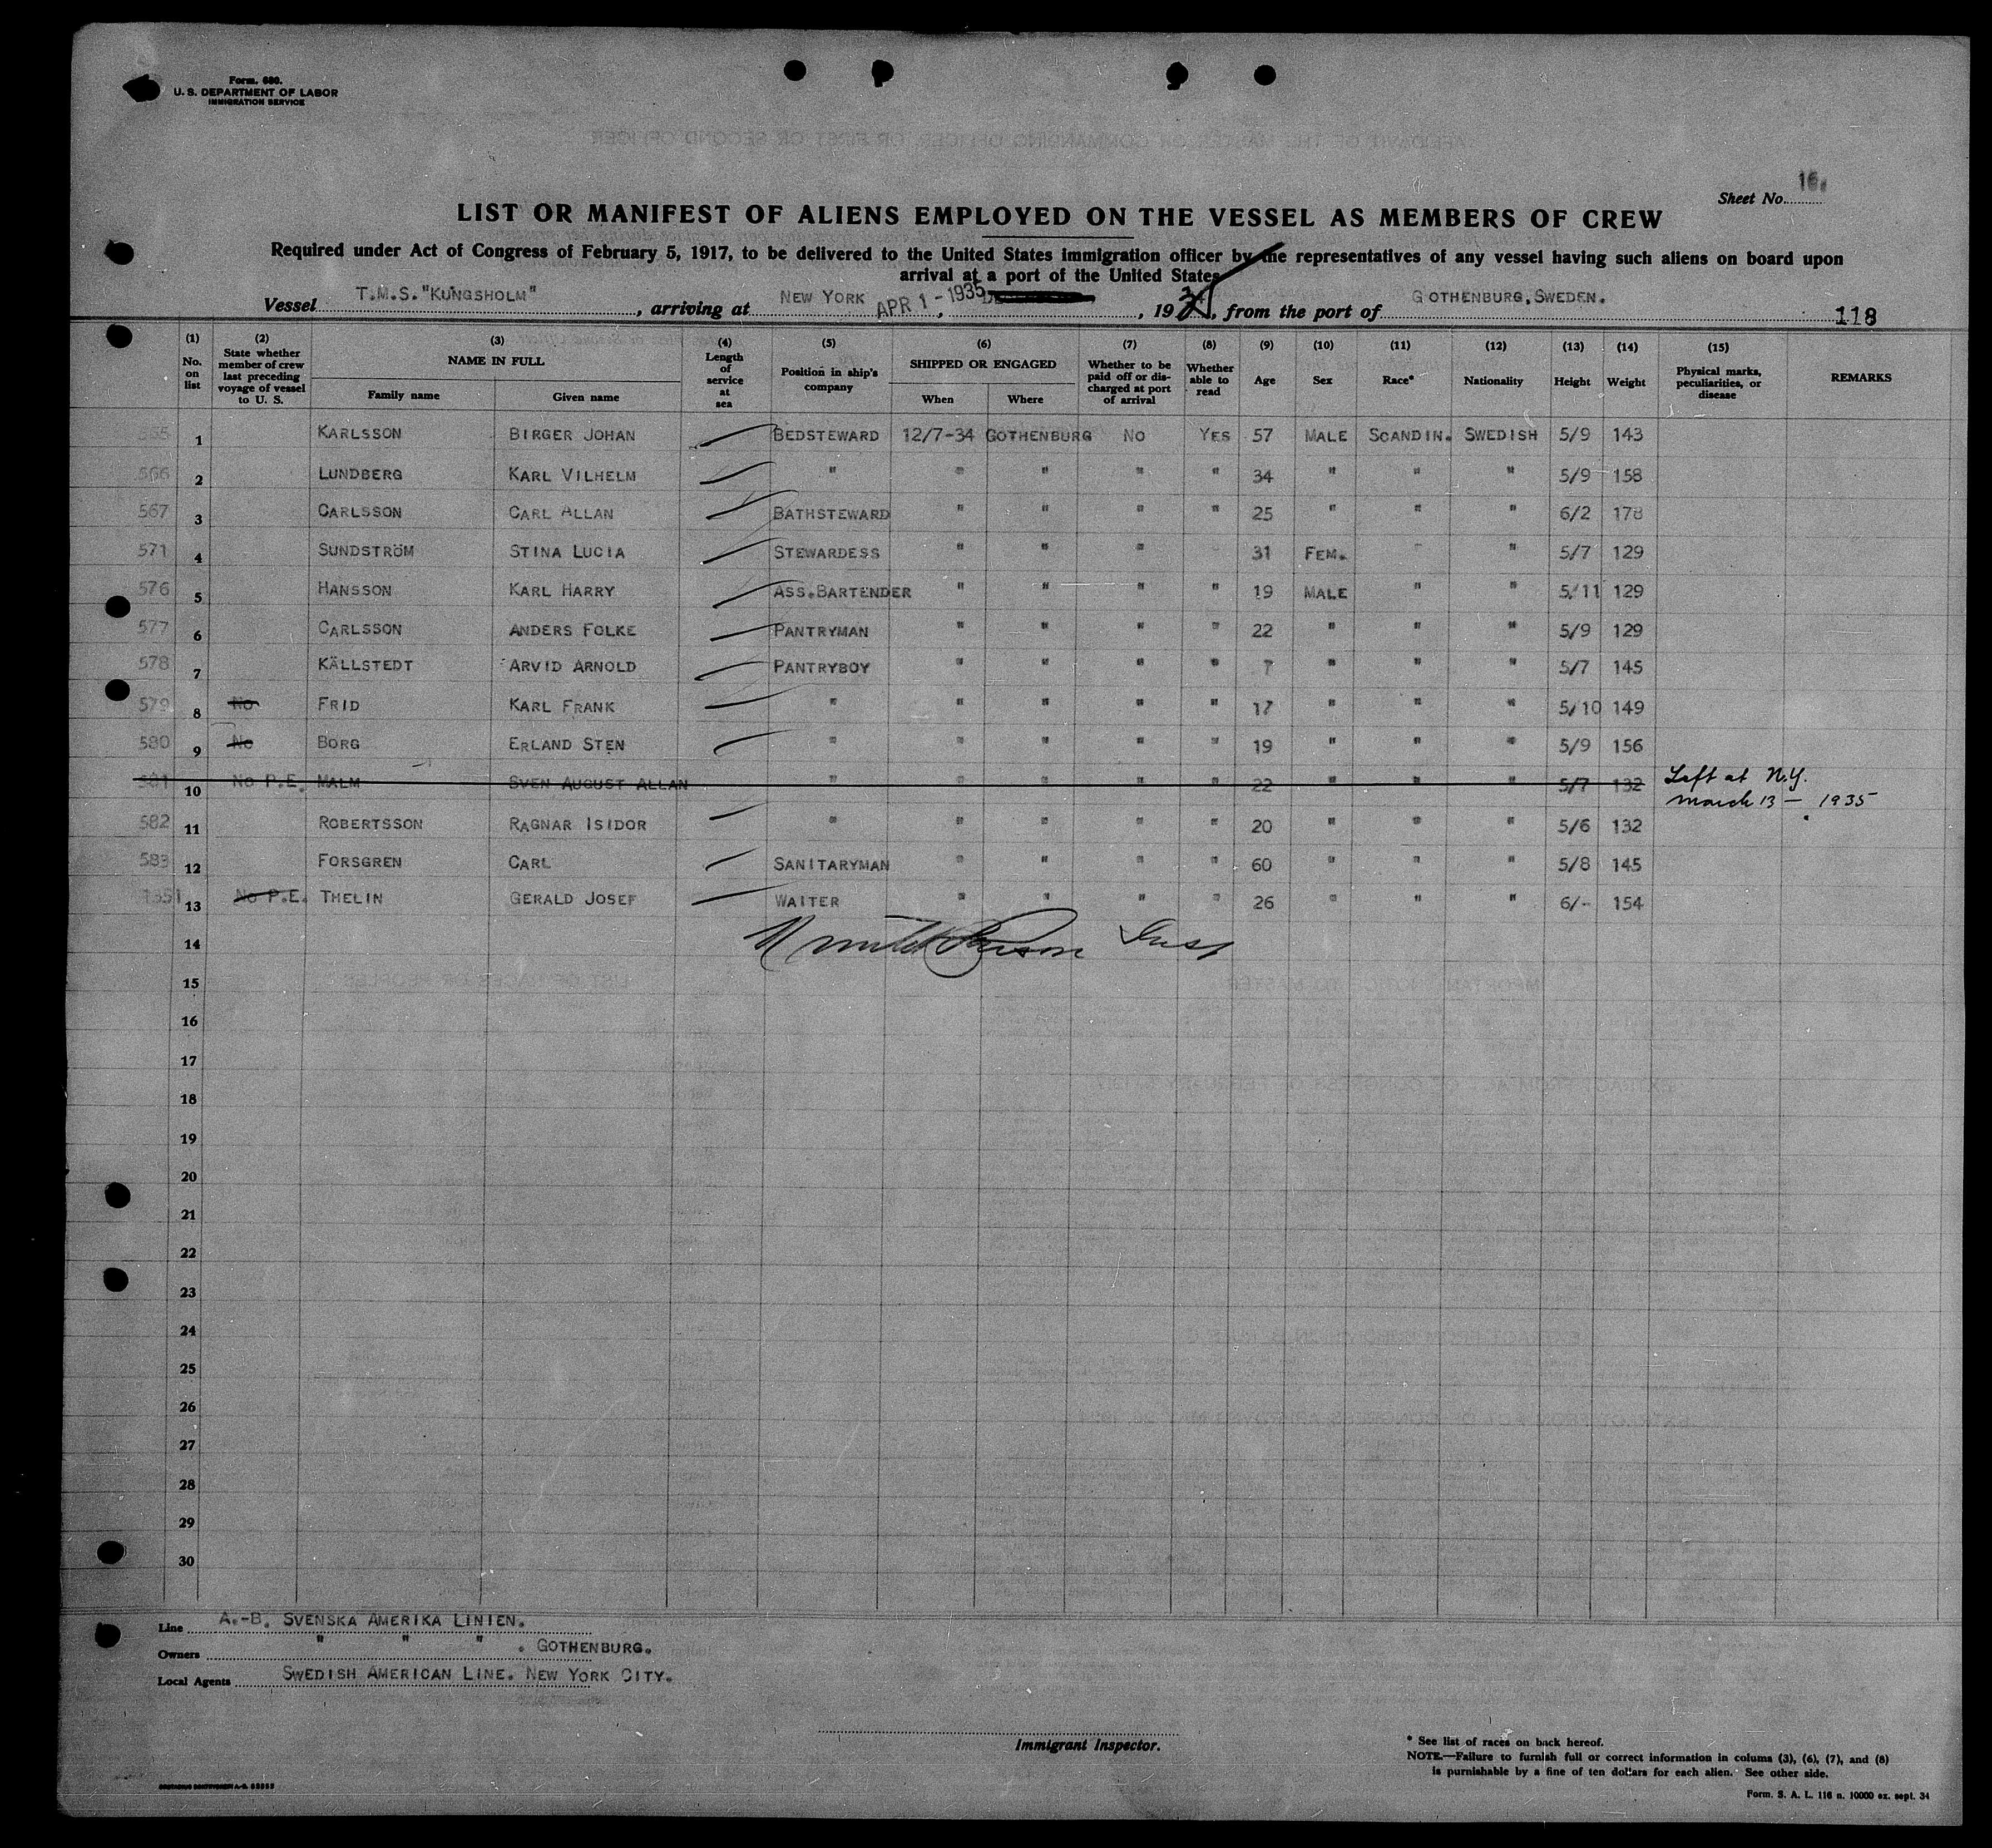 Form. 680.
U. S. DEPARTMENT OF LABOR
IMMIGRATION SERVICE
Sheet No. 16.
LIST OR MANIFEST OF ALIENS EMPLOYED ON THE VESSEL AS MEMBERS OF CREW
Required under Act of Congress of February 5, 1917, to be delivered to the United States immigration officer by the representatives of any vessel having such aliens on board upon
arrival at a port of the United States
Vessel T.M.S. "KUNGSHOLM", arriving at NEW YORK APR 1 - 1935, 193, from the port of GOTHENBURG, SWEDEN.
118
(1) No. on list
(2) State whether member of crew last preceding voyage of vessel to U. S.
(3) NAME IN FULL Family name Given name
(4) Length of service at sea
(5) Position in ship's company
(6) SHIPPED OR ENGAGED When Where
(7) Whether to be paid off or discharged at port of arrival
(8) Whether able to read
(9) Age
(10) Sex
(11) Race*
(12) Nationality
(13) Height
(14) Weight
(15) Physical marks, peculiarities, or disease
REMARKS
565 1 KARLSSON BIRGER JOHAN BEDSTEWARD 12/7-34 GOTHENBURG NO YES 57 MALE SCANDIN. SWEDISH 5/9 143
566 2 LUNDBERG KARL VILHELM " " " " " 34 " " " 5/9 158
567 3 CARLSSON CARL ALLAN BATHSTEWARD " " " " 25 " " " 6/2 178
571 4 SUNDSTRÖM STINA LUCIA STEWARDESS " " " 31 FEM. " " 5/7 129
576 5 HANSSON KARL HARRY ASS.BARTENDER " " " " 19 MALE " " 5/11 129
577 6 CARLSSON ANDERS FOLKE PANTRYMAN " " " " 22 " " " 5/9 129
578 7 KÄLLSTEDT ARVID ARNOLD PANTRYBOY " " " " " " " 5/7 145
579 8 No FRID KARL FRANK " " " " " 17 " " " 5/10 149
580 9 No BORG ERLAND STEN " " " " " 19 " " " 5/9 156
581 10 No P.E. MALM SVEN AUGUST ALLAN " " " " " 22 " " " 5/7 132 Left at N.Y.
March 13 - 1935
582 11 ROBERTSSON RAGNAR ISIDOR " " " " " 20 " " " 5/6 132
583 12 FORSGREN CARL SANITARYMAN " " " " 60 " " " 5/8 145
1351 13 No P.E. THELIN GERALD JOSEF WAITER " " " " 26 " " " 6/- 154
14 Insp
15
16
17
18
19
20
21
22
23
24
25
26
27
28
29
30
Line A.-B. SVENSKA AMERIKA LINIEN.
Owners " " " . GOTHENBURG.
Local Agents SWEDISH AMERICAN LINE. NEW YORK CITY.
Immigrant Inspector.
* See list of races on back hereof.
NOTE.—Failure to furnish full or correct information in colums (3), (6), (7), and (8)
is purnishable by a fine of ten dollars for each alien. See other side.
Form. S. A. L. 116 n. 10000 ex. sept. 34